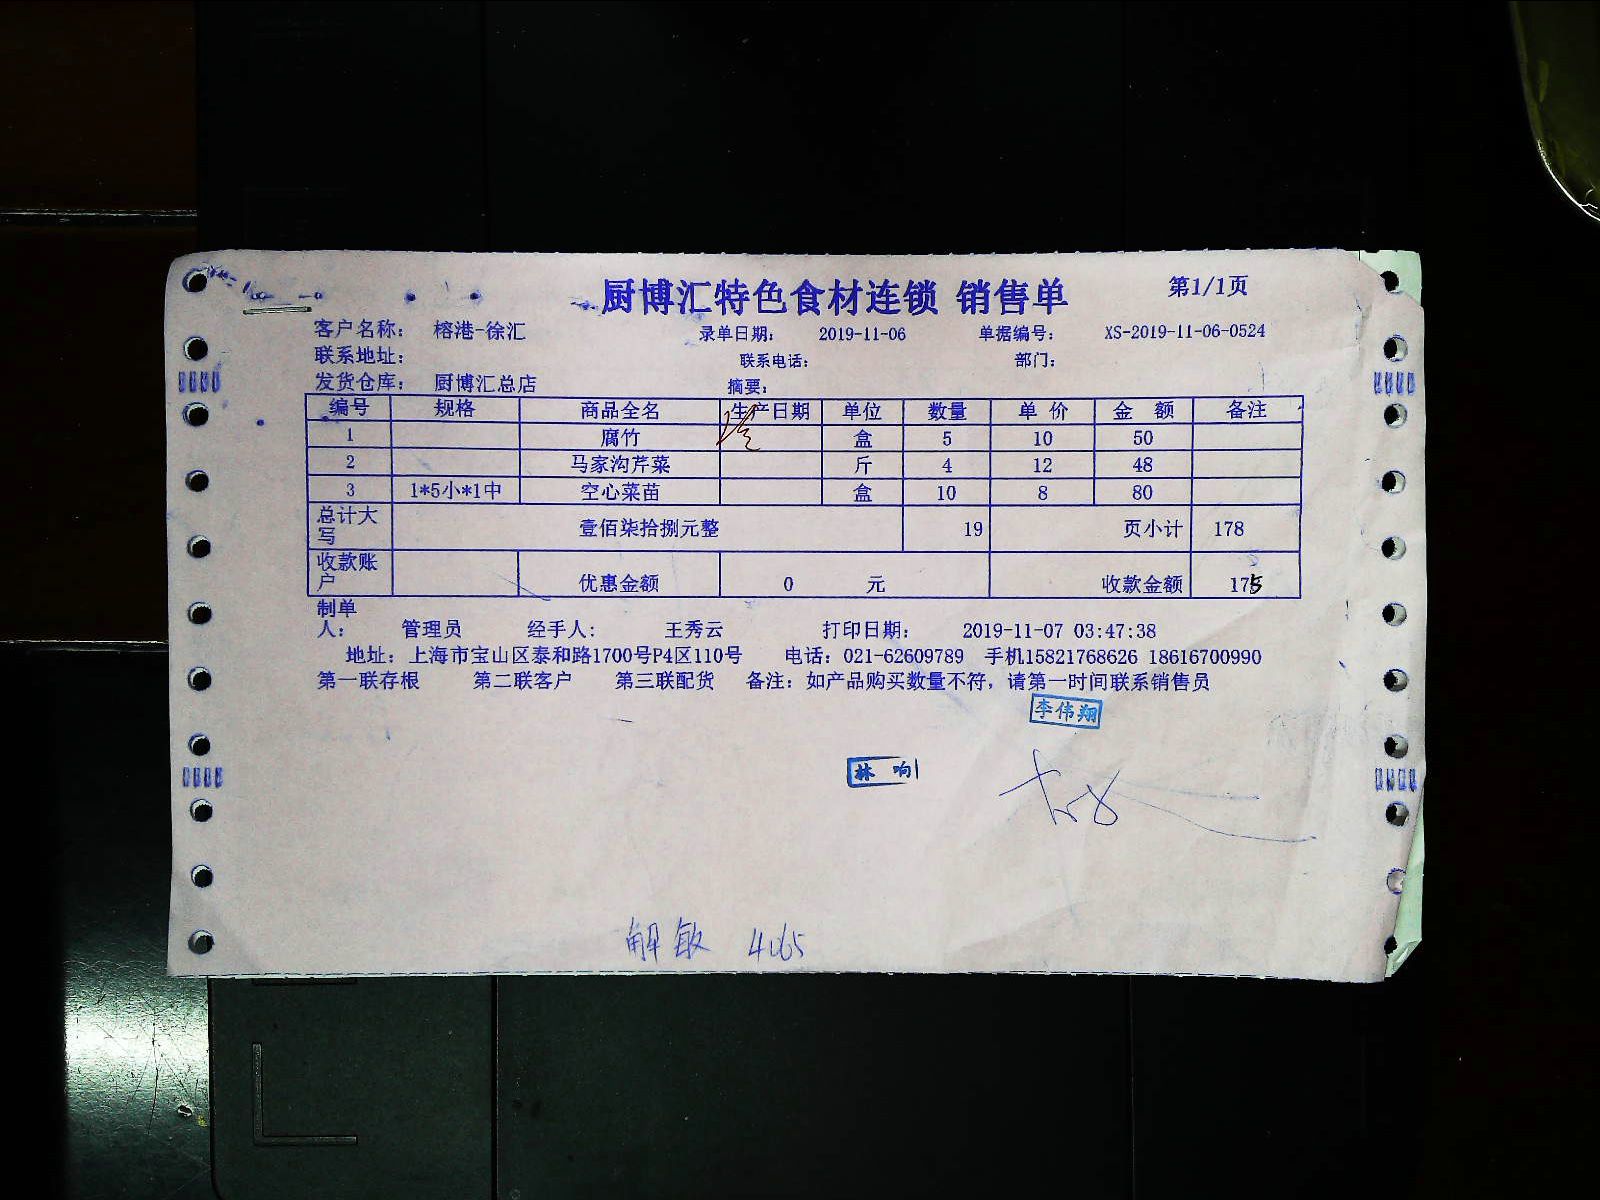 厨博汇特色食材连锁 销售单 第1/1页
客户名称： 榕港-徐汇 录单日期： 2019-11-06 单据编号： XS-2019-11-06-0524
联系地址： 联系电话： 部门：
发货仓库： 厨博汇总店 摘要：
编号 规格 商品全名 生产日期 单位 数量 单 价 金 额 备注
1 腐竹 盒 5 10 50
2 马家沟芹菜 斤 4 12 48
3 1*5小*1中 空心菜苗 盒 10 8 80
总计大写 壹佰柒拾捌元整 19 页小计 178
收款账户 优惠金额 0 元 收款金额 175
制单人： 管理员 经手人： 王秀云 打印日期： 2019-11-07 03:47:38
地址：上海市宝山区泰和路1700号P4区110号 电话：021-62609789 手机15821768626 18616700990
第一联存根 第二联客户 第三联配货 备注：如产品购买数量不符，请第一时间联系销售员
李伟翔
林 响
解敏